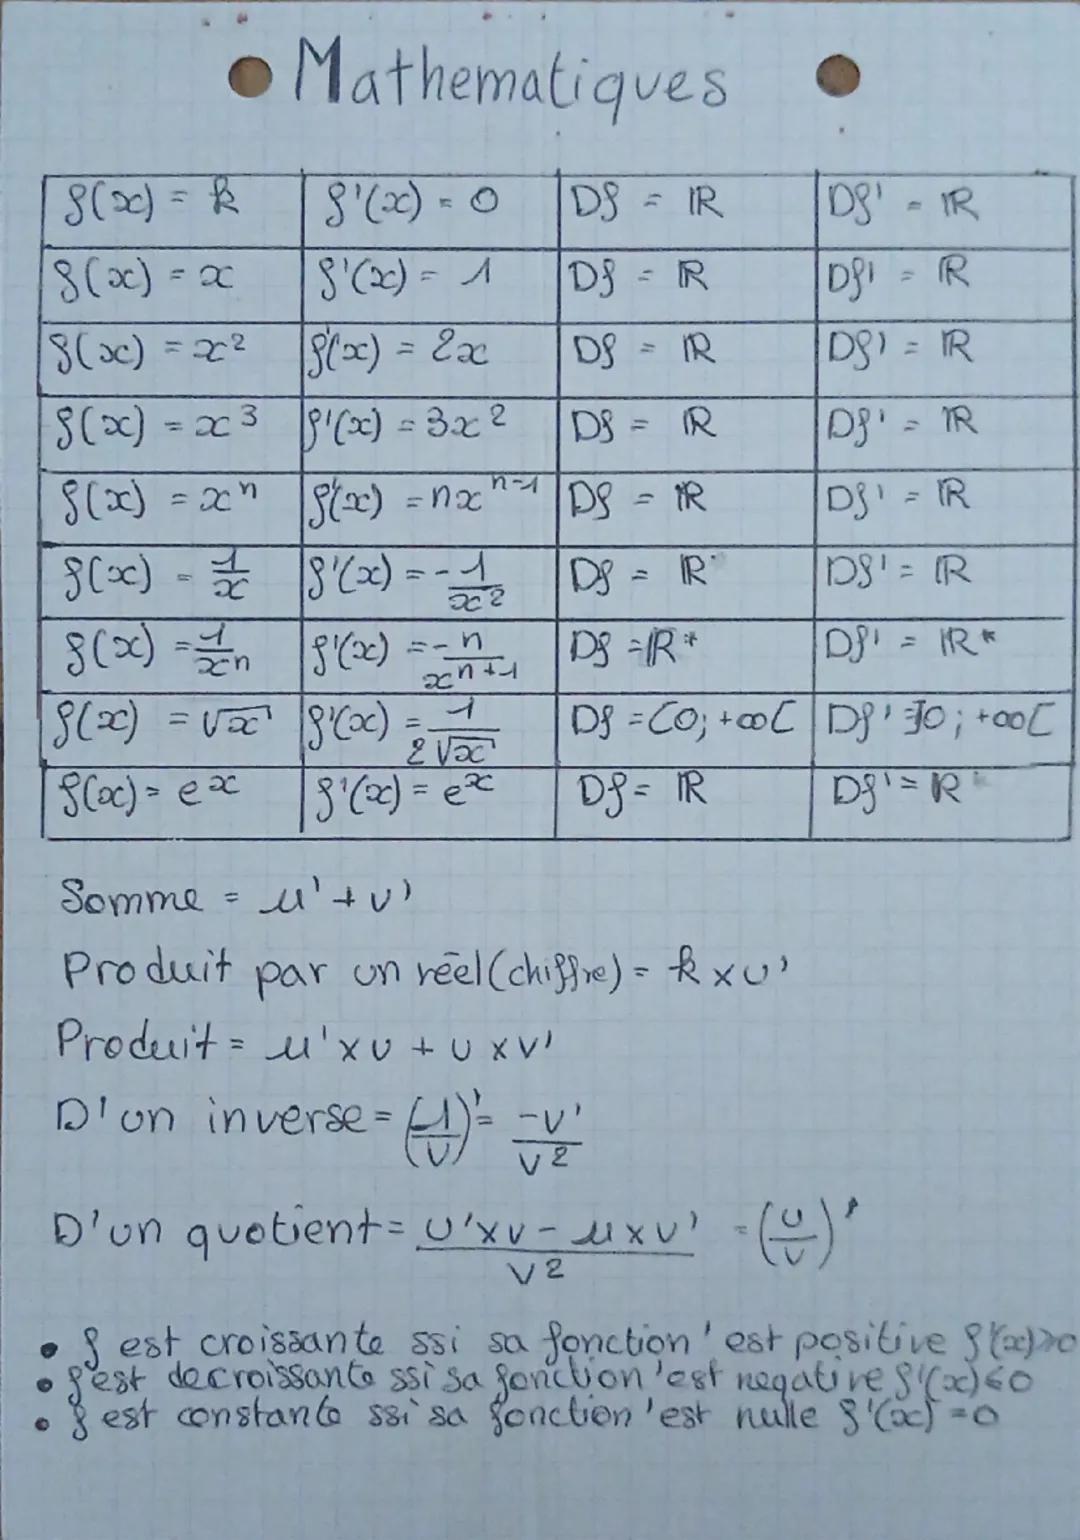 Mathematiques
f(x) = k f'(x) = 0 Df = ℝ Df' = ℝ
f(x) = x f'(x) = 1 Df = ℝ Df' = ℝ
f(x) = x² f'(x) = 2x Df = ℝ Df' = ℝ
f(x) = x³ f'(x) = 3x² Df = ℝ Df' = ℝ
f(x) = xⁿ f'(x) = nxⁿ⁻¹ Df = ℝ Df' = ℝ
f(x) = 1/x f'(x) = -1/x² Df = ℝ Df' = ℝ
f(x) = 1/xⁿ f'(x) = -n/xⁿ⁺¹ Df = ℝ* Df' = ℝ*
f(x) = √x f'(x) = 1/2√x Df = [0; +∞[ Df' = ]0; +∞[
f(x) = eˣ f'(x) = eˣ Df = ℝ Df' = ℝ
Somme = u' + v'
Produit par un réel (chiffre) = k x u'
Produit = u' x v + u x v'
D'un inverse = (1/v)' = -v'/v²
D'un quotient = u' x v - u x v'/v² = (u/v)'
• f est croissante ssi sa fonction ' est positive f'(x) ≥ 0
• f est decroissante ssi sa fonction ' est negative f'(x) ≤ 0
• f est constante ssi sa fonction ' est nulle f'(x) = 0